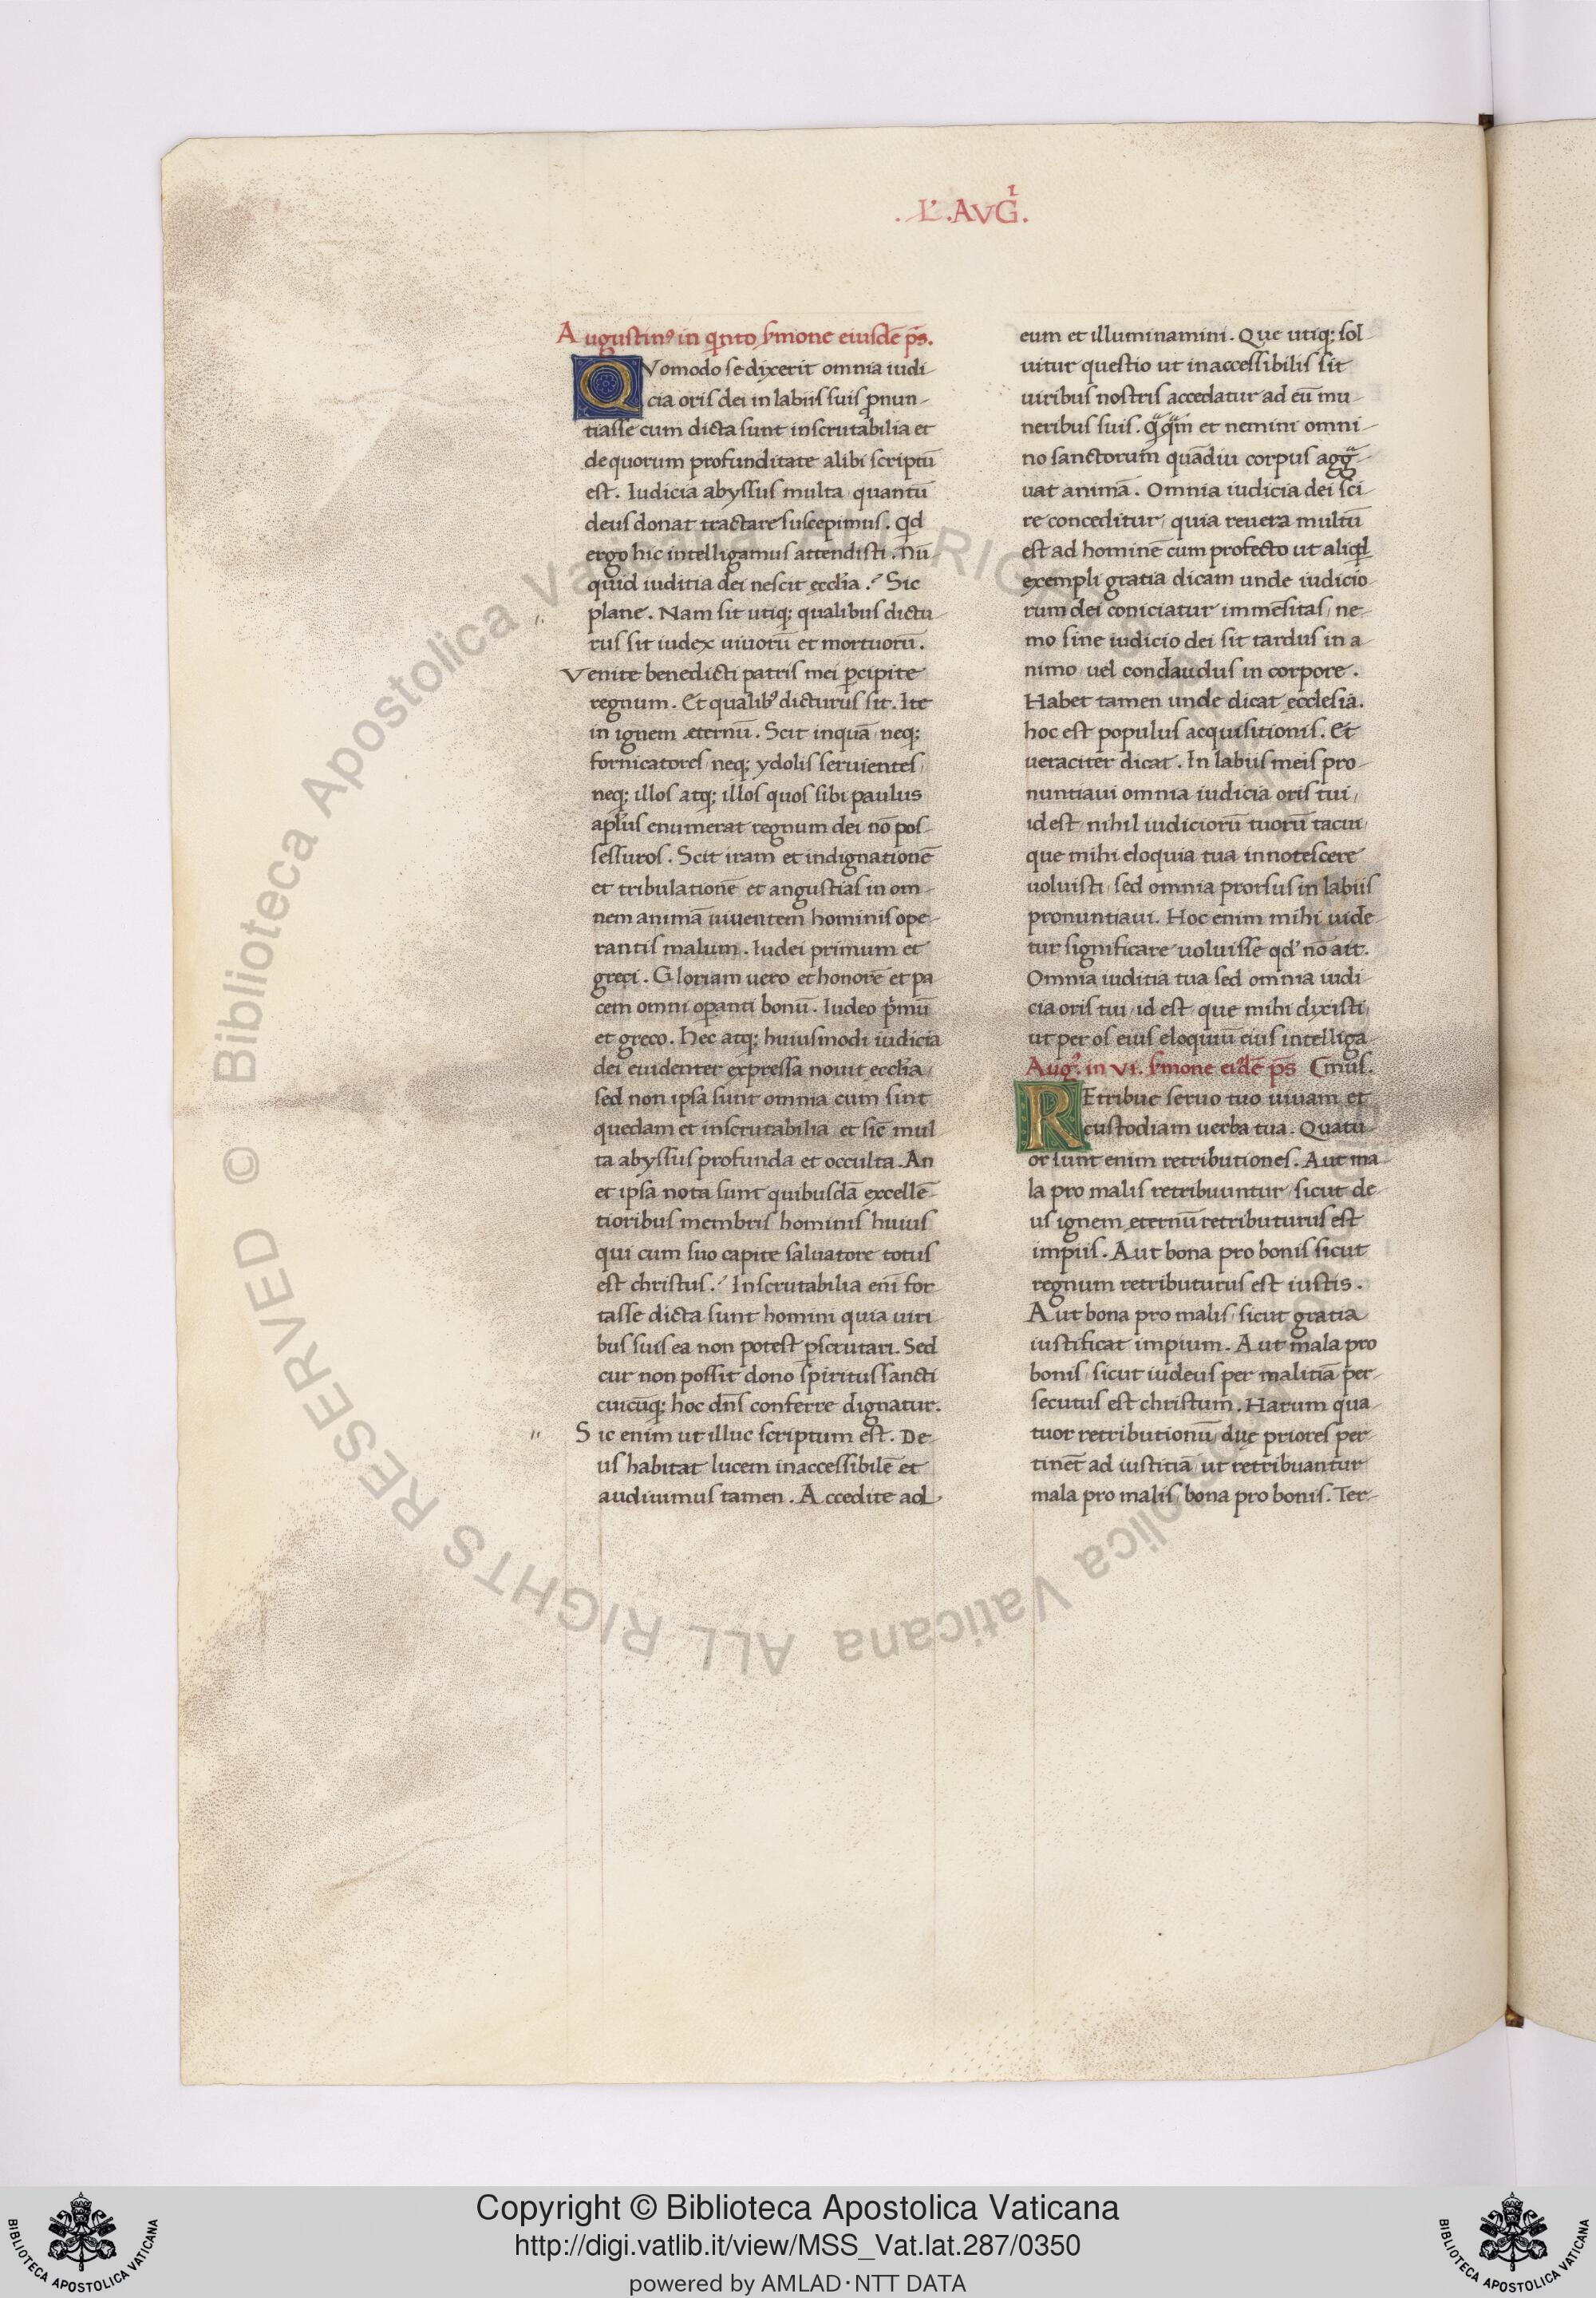 . L’ . AVG͛ .
Augustinꝰ in qͥnto sͬmone eiusdē ps̄.
QVomodo se dixerit omnia iudi-
cia oris dei in labiis suis ꝓnun-
tiasse cum dicta sunt inscrutabilia et
de quorum profunditate alibi scriptū
est. Iudicia abyssus multa quantū
deus donat tractare suscepimus. Qd
ergo hic intelligamus attendisti. Nū-
quid iuditia dei nescit eccƚia.? Sic
plane. Nam sit utiq; qualibus dictu-
rus sit iudex uiuorū et mortuorū.
Venite benedicti patris mei ꝑcipite
regnum. Et qualibꝰ dicturus sit. Ite
in ignem æternū. Scit inquā neq;
fornicatores neq; ydolis seruientes
neq; illos atq; illos quos sibi paulus
apƚus enumerat regnum dei nō pos-
sessuros. Scit iram et indignationē
et tribulationē et angustias in om-
nem animā uiuentem hominis ope-
rantis malum. Iudei primum et
greci. Gloriam uero et honorē et pa
cem omni oꝑanti bonū. Iudeo pͥmū
et greco. Hec atq; huiusmodi iudicia
dei euidenter expressa nouit eccƚia
sed non ipsa sunt omnia cum sint
quedam et inscrutabilia et sic̄ mul
ta abyssus profunda et occulta. An
et ipsa nota sunt quibusdā excellē-
tioribus membris hominis huius
qui cum suo capite saluatore totus
est christus.? Inscrutabilia eni᷃ for-
tasse dicta sunt homini quia uiri-
bus suis ea non potest ꝑscrutari. Sed
cur non possit dono spiritus sancti
cuicūq; hoc dn̄s conferre dignatur.
Sic enim ut illuc scriptum est. De-
us habitat lucem inaccessibilē et
audiuimus tamen. Accedite ad
eum et illuminamini. Que utiq; sol-
uitur questio ut inaccessibilis sit
uiribus nostris accedatur ad eū mu-
neribus suis. qͣqͣm et nemini omni-
no sanctorum quādiu corpus aggͣ-
uat animā. Omnia iudicia dei sci
re conceditur quia reuera multū
est ad hominē cum profecto ut aliqd
exempli gratia dicam unde iudicio-
rum dei coniciatur immēsitas ne-
mo sine iudicio dei sit tardus in a-
nimo uel conclaudus in corpore.
Habet tamen unde dicat ecclesia.
hoc est populus acquisitionis. Et
ueraciter dicat. In labiis meis pro-
nuntiaui omnia iudicia oris tui
id est nihil iudiciorū tuorū tacui
que mihi eloquia tua innotescere
uoluisti sed omnia prorsus in labiis
pronuntiaui. Hoc enim mihi uide-
tur significare uoluisse qd’ nō ait.
Omnia iuditia tua sed omnia iudi-
cia oris tui id est que mihi dixisti
ut per os eius eloquiū eius intelliga-
Augꝰ. in VI. sͬmone eiꝰdē ps̄ (mus.
REtribue seruo tuo uiuam et
custodiam uerba tua. Quatu-
or sunt enim retributiones. Aut ma-
la pro malis retribuuntur sicut de-
us ignem eternū retributurus est
impiis. Aut bona pro bonis sicut
regnum retributurus est iustis.
Aut bona pro malis sicut gratia
iustificat impium. Aut mala pro
bonis sicut iudeus per malitiā per-
secutus est christum. Harum qua-
tuor retributionū due priores per-
tinēt ad iustitiā ut retribuantur
mala pro malis bona pro bonis. Ter-
© Biblioteca Apostolica Vaticana ALL RIGHTS RESERVED
Copyright © Biblioteca Apostolica Vaticana
http://digi.vatlib.it/view/MSS_Vat.lat.287/0350
powered by AMLAD·NTT DATA
BIBLIOTECA APOSTOLICA VATICANA
BIBLIOTECA APOSTOLICA VATICANA